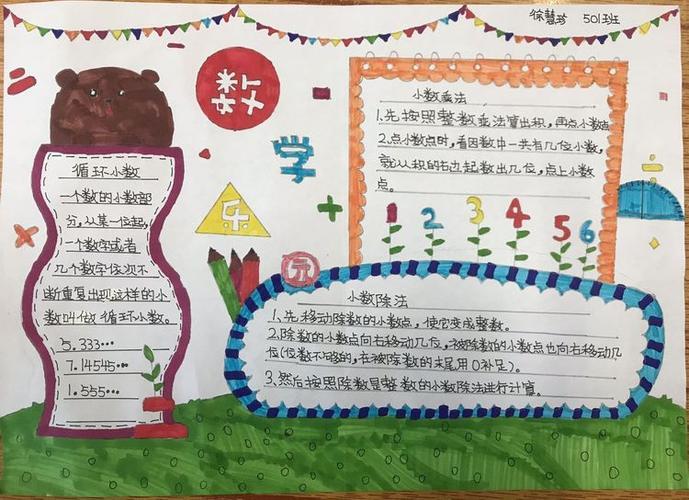 徐慧珍 501班
数
学
乐
园
循环小数
一个数的小数部
分，从某一位起，
一个数字或者
几个数字依次不
断重复出现这样的小
数叫做循环小数。
5.333…
7.14545…
1.555…
小数乘法
1.先按照整数乘法算出积，再点小数点
2.点小数点时，看因数中一共有几位小数，
就从积的右边起数出几位，点上小数
点。
1 2 3 4 5 6
小数除法
1.先移动除数的小数点，使它变成整数。
2.除数的小数点向右移动几位，被除数的小数点也向右移动几
位(位数不够的，在被除数的末尾用0补足)。
3.然后按照除数是整数的小数除法进行计算。